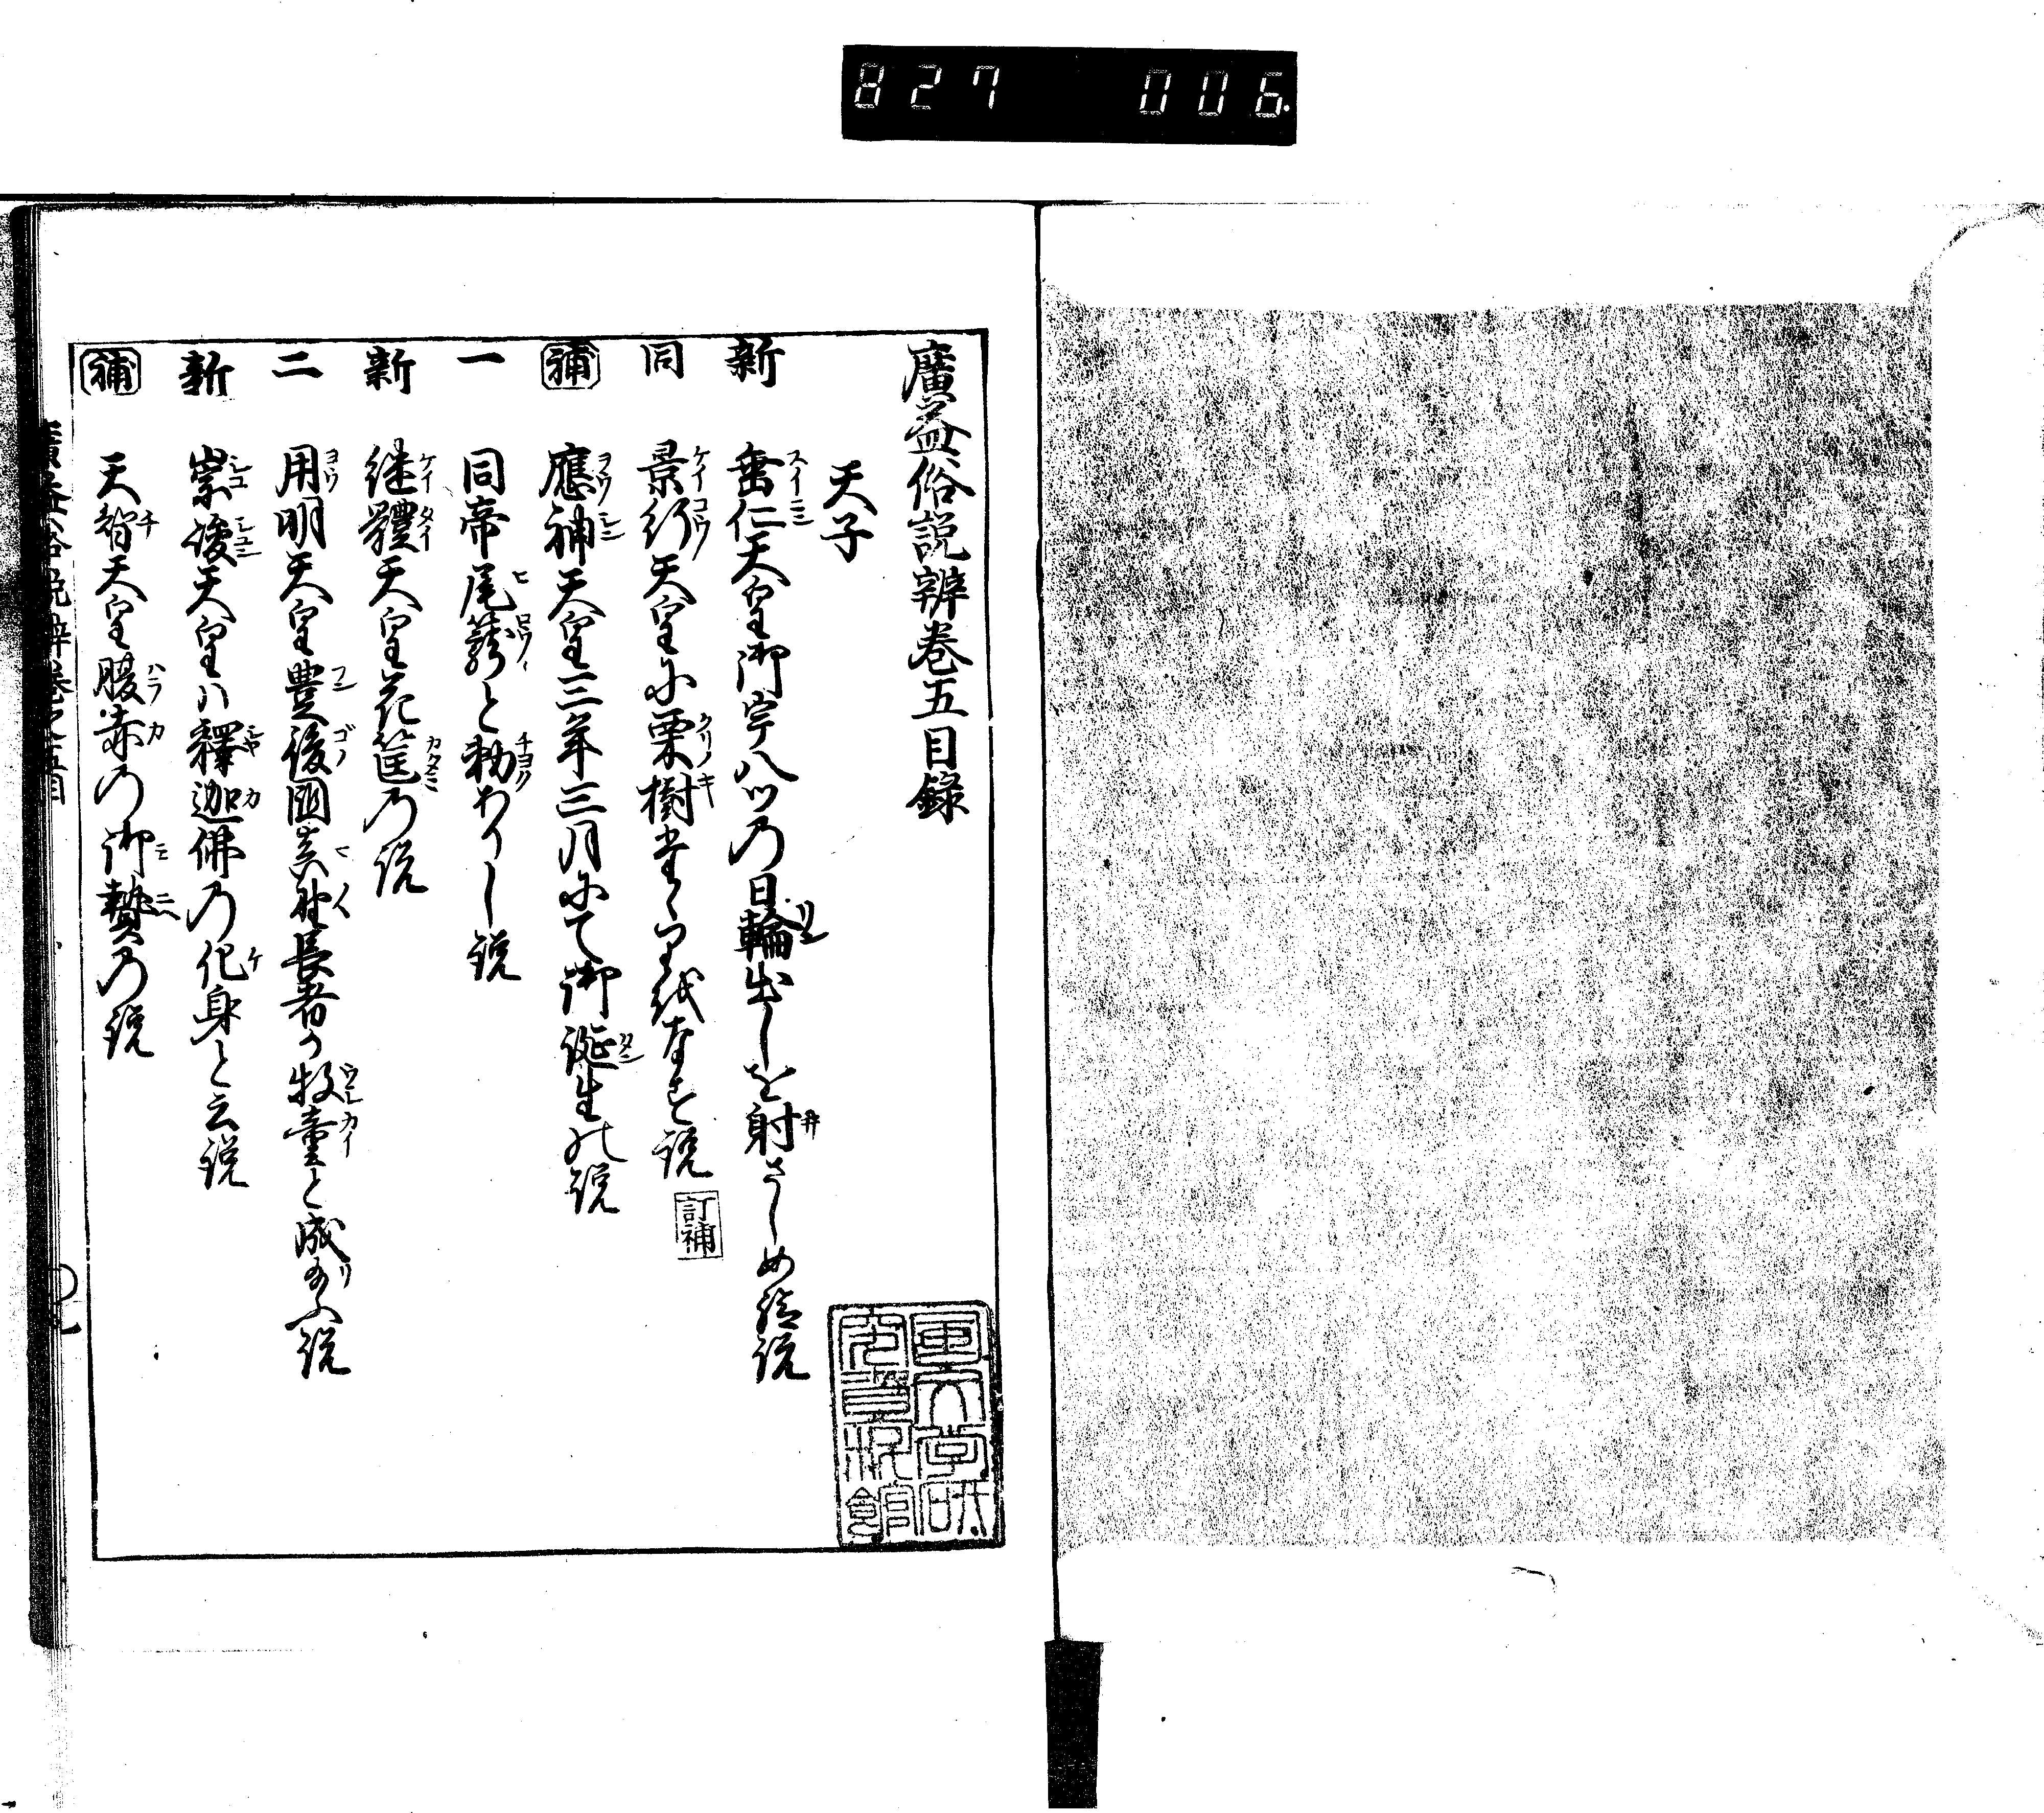 827 006
廣益俗説辨巻五目録
天子
新 垂仁天皇御宇八ツの日輪出しを射さしめ給説
同 景行天皇小栗樹たをなす説 訂補
補 應神天皇三年三月にて御誕生の説
一 同帝尾籠と勅ありし説
新 継體天皇花筐の説
二 用明天皇豊後國真野長者の牧童と成給ふ説
新 崇峻天皇ハ釋迦佛の化身と云説
補 天智天皇腹赤の御贄の説